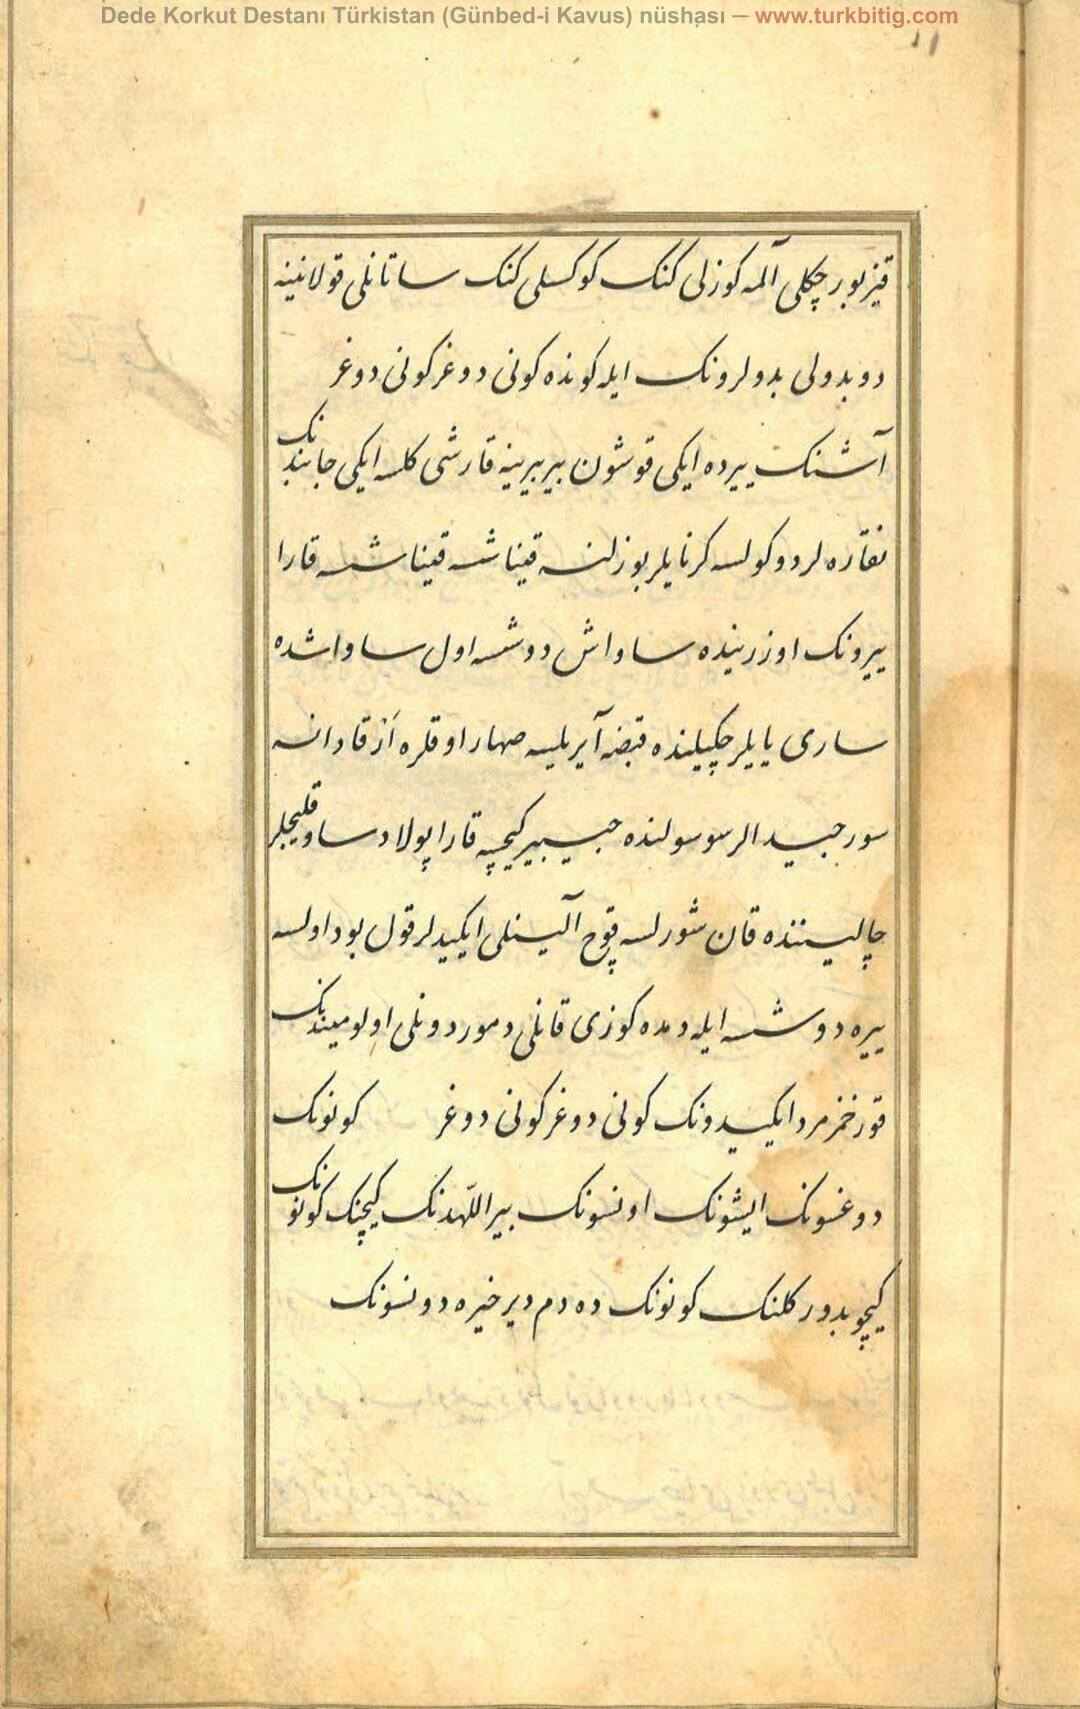 Dede Korkut Destanı Türkistan (Günbed-i Kavus) nüshası — www.turkbitig.com
۱۱
قیز بورچکلی آلمه کوزلی کنک کوکسلی کنک ساتانلی قولانینه
دوبدولی بدولرونک ایله کونده کونی دوغر کونی دوغر
آشنک ییرده ایکی قوشون بیر بیرینه قارشی کلسه ایکی جابندنک
نقاره لر دوکولسه کرنایلر بوزلنسه قیناشسه قیناشسه قارا
ییرونک اوزرینده ساواش دوشسه اول ساواشده
ساری یایلر چکیلینده قبضه آیریلسه صهار اوقلره اَژقادانسه
سور جیدالر سوسولنده جیبیر کیچپه قارا پولاد ساو قلیجلر
چالیسننده قان شورلسه قوچ آلینلی ایکیدلر قول بود اولسه
ییره دوشسه ایله دمده کوزی قانلی دموردونلی اولومیندنک
قورخمز مرد ایکیدونک کونی دوغر کونی دوغر کونونک
دوغسونک ایشونک اونسونک بیر اللّهدنک کیچنک کونونک
کیچوبدور کلنک کونونک ده دم دیر خیره دونسونک